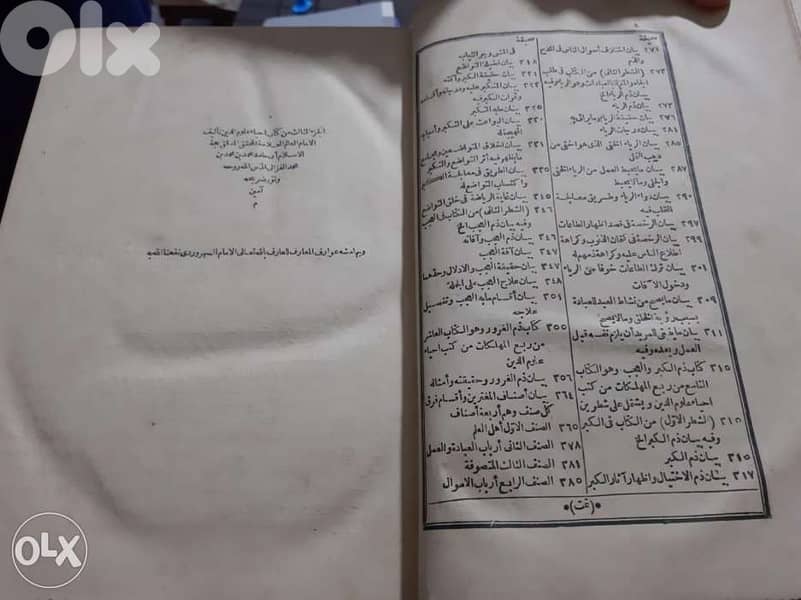 olx
٤
صحيفة
٢٧١ بيان اختلاف أحوال الناس في المدح
والذم
٢٧٣ (الشطر الثاني) من الكتاب في طلب
الجاه والمنزلة بالعبادات وهو الرياء وفيه
بيان ذم الرياء الخ
٢٧٣ بيان ذم الرياء
٢٧٦ بيان حقيقة الرياء وما يراءى به
٢٨١ بيان درجات الرياء
٢٨٥ بيان الرياء الخفي الذي هو أخفى من
دبيب النمل
٢٨٧ بيان ما يحبط العمل من الرياء الخفي
والجلي وما لا يحبط
٢٩٠ بيان دواء الرياء وطريق معالجة
القلب فيه
٢٩٧ بيان الرخصة في قصد اظهار الطاعات
٢٩٩ بيان الرخصة في كتمان الذنوب وكراهة
اطلاع الناس عليه وكراهة ذمهم له
٣٠١ بيان ترك الطاعات خوفا من الرياء
ودخول الآفات
٣٠٩ بيان ما يصح من نشاط العبد للعبادة
بسبب رؤية الخلق وما لا يصح
٣١١ بيان ما ينبغي للمريد أن يلزم نفسه قبل
العمل وبعده وفيه
٣١٥ كتاب ذم الكبر والعجب وهو الكتاب
التاسع من ربع المهلكات من كتب
احياء علوم الدين ويشتمل على شطرين
٣١٥ (الشطر الأول) من الكتاب في الكبر
وفيه بيان ذم الكبر الخ
٣١٥ بيان ذم الكبر
٣١٧ بيان ذم الاختيال واظهار آثار الكبر
صحيفة
في المشي وجر الثياب
٣١٨ بيان فضيلة التواضع
٣٢١ بيان حقيقة الكبر وآفته
بيان المتكبر عليه ودرجاته وأقسامه
وثمرات الكبر فيه
٣٢٥ بيان ما به التكبر
٣٣٠ بيان البواعث على التكبر وأسبابه
المهيجة له
بيان أخلاق المتواضعين ومجامع
ما يظهر فيه أثر التواضع والتكبر
٣٣٥ بيان الطريق في معالجة الكبر
واكتساب التواضع له
بيان غاية الرياضة في خلق التواضع
٣٤٦ (الشطر الثاني) من الكتاب في العجب
وفيه بيان ذم العجب الخ
٣٤٦ بيان ذم العجب وآفاته
بيان آفة العجب
٣٤٧ بيان حقيقة العجب والادلال وحدهما
٣٤٨ بيان علاج العجب على الجملة
بيان أقسام ما به العجب وتفصيل
علاجه
٣٥٥ كتاب ذم الغرور وهو الكتاب العاشر
من ربع المهلكات من كتب احياء
علوم الدين
٣٥٦ بيان ذم الغرور وحقيقته وأمثلته
٣٦٤ بيان أصناف المغترين وأقسام فرق
كل صنف وهم أربعة أصناف
٣٦٥ الصنف الأول أهل العلم
٣٧٨ الصنف الثاني أرباب العبادة والعمل
٣٨١ الصنف الثالث المتصوفة
٣٨٥ الصنف الرابع أرباب الاموال
(تمت)
الجزء الثالث من كتاب احياء علوم الدين تأليف
الامام العالم العلامة المحقق المدقق حجة
الاسلام أبى حامد محمد بن محمد بن
محمد الغزالى قدس الله روحه
ونور ضريحه
آمين
م
وبهامشه عوارف المعارف للعارف بالله تعالى الامام السهروردى نفعنا الله به
OLX